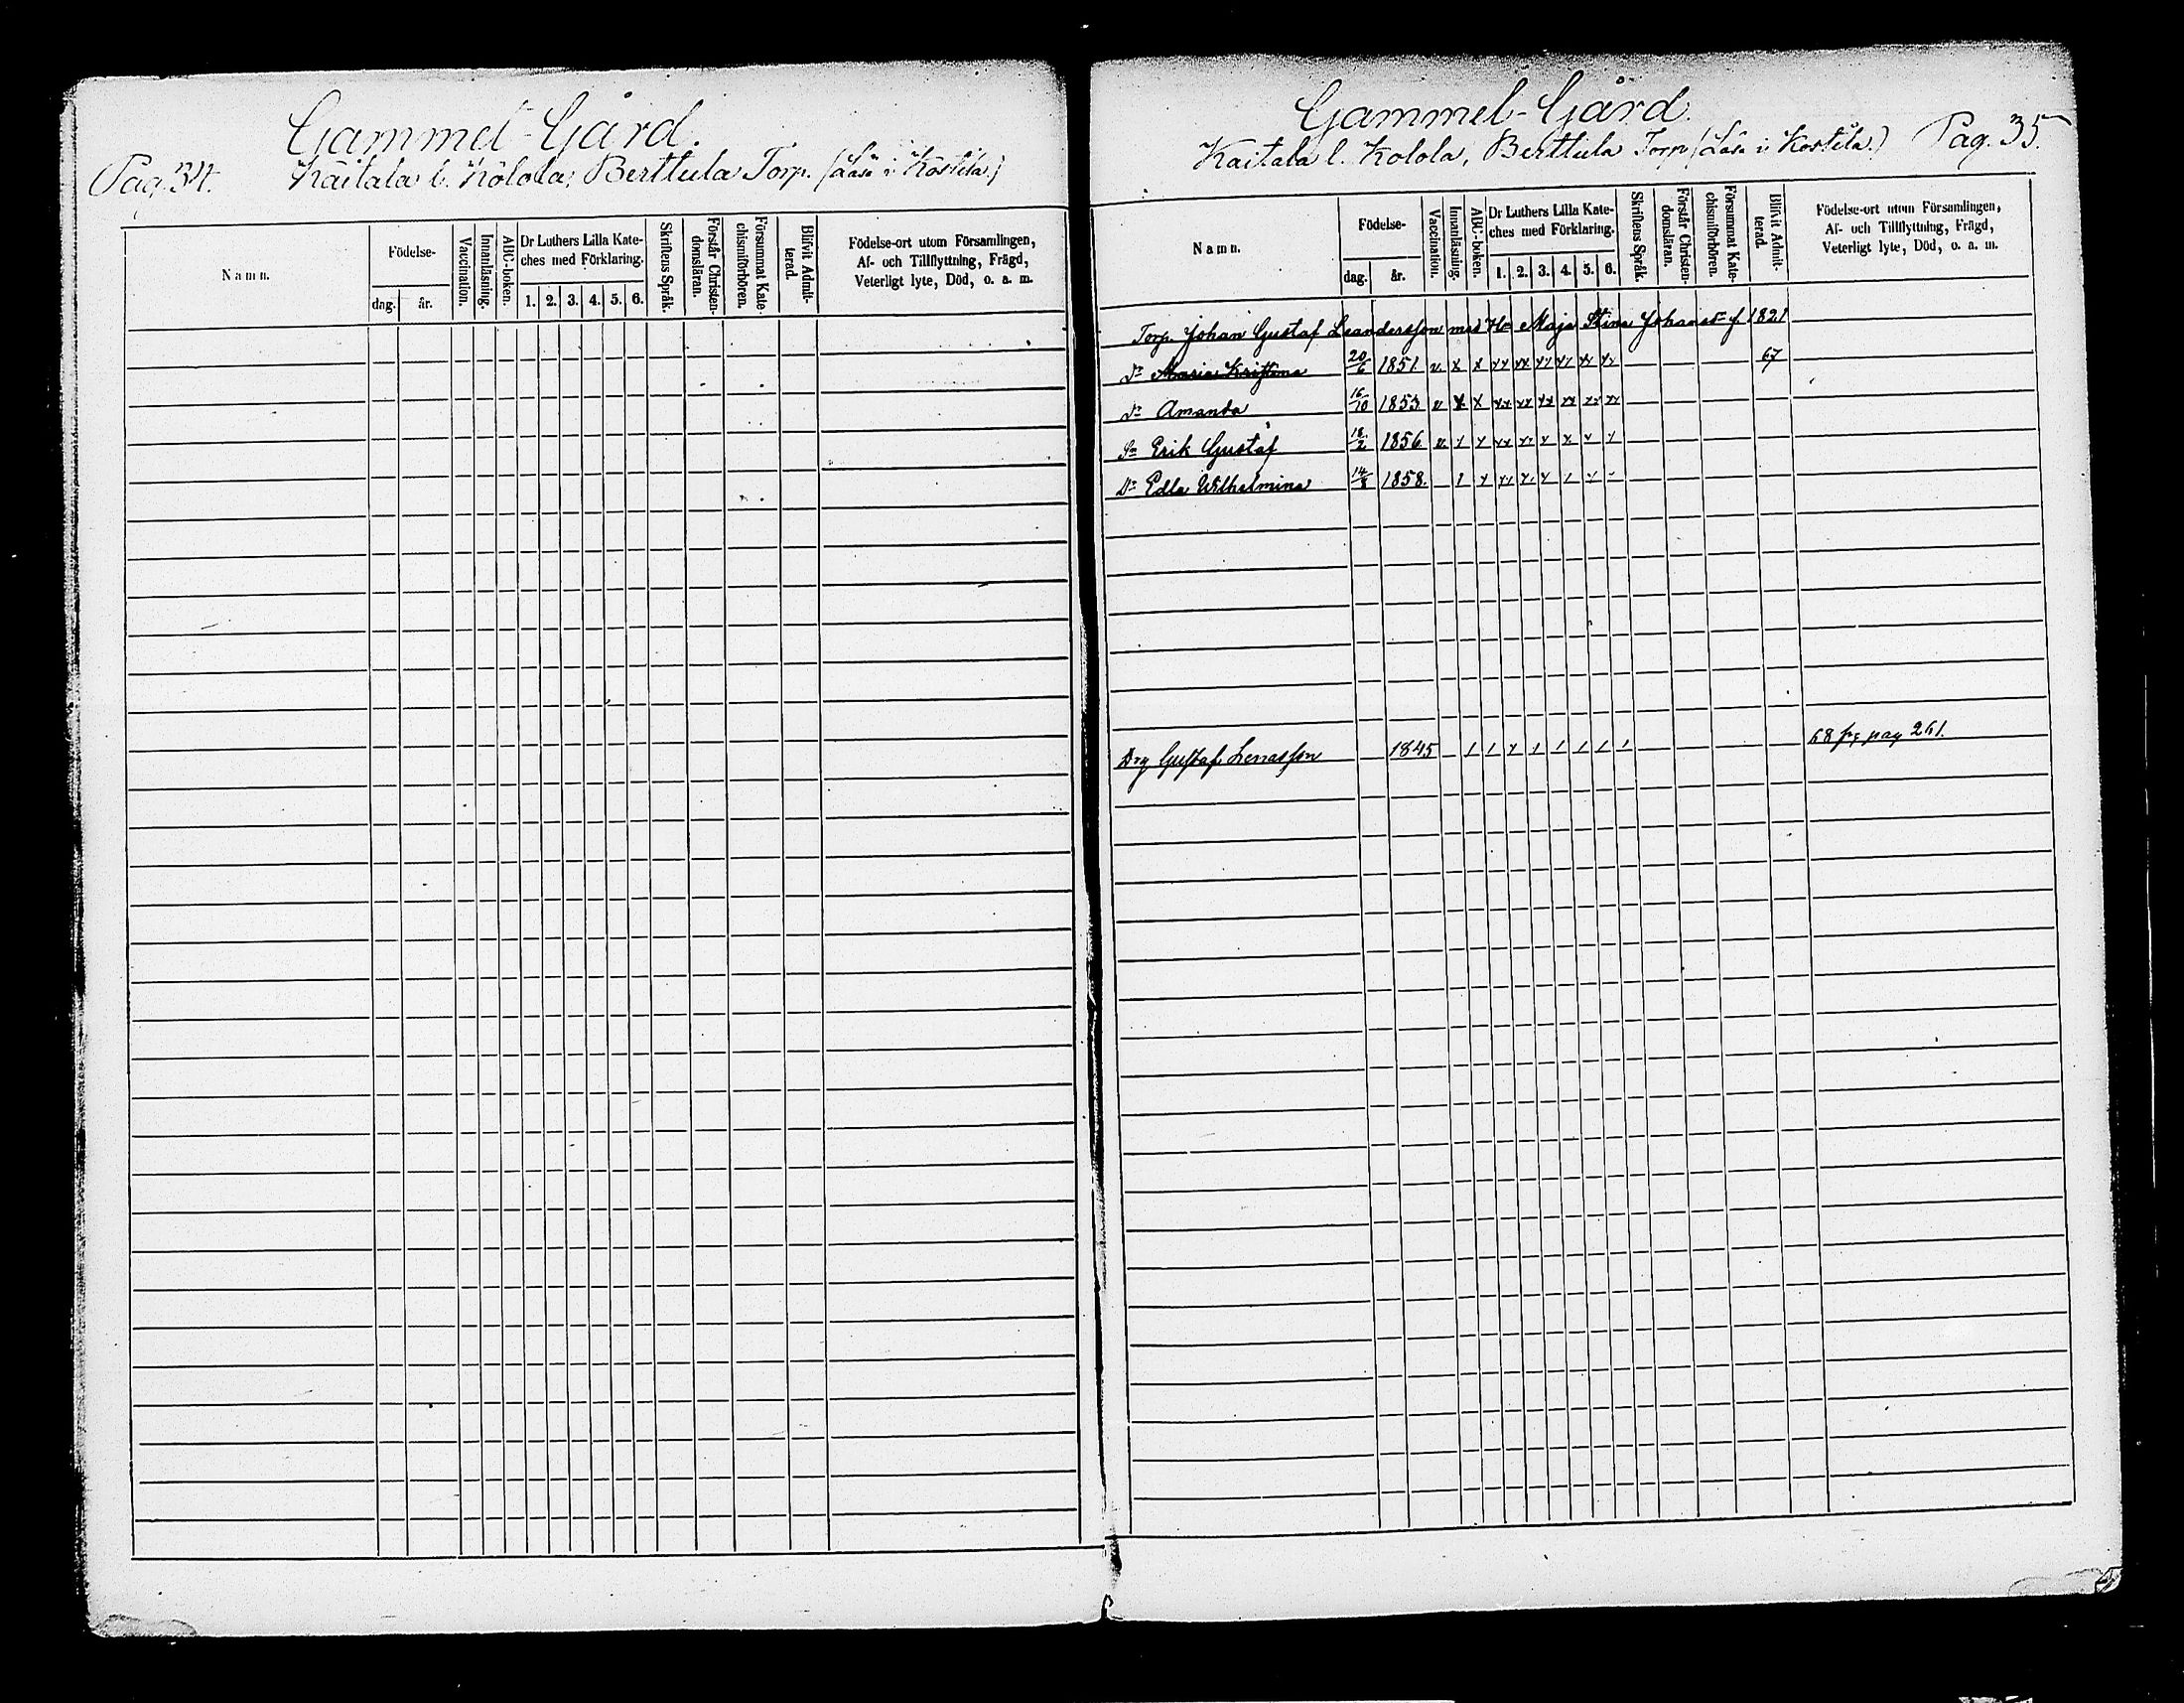 Gammel-Gård.
Pag. 34. Kaitala l. Kolola, Berttula Torp. (Läsa i Kostila.)
Namn. Födelse- dag. år. Vaccination. Innanläsning. ABC-boken. Dr Luthers Lilla Kateches med Förklaring. 1. 2. 3. 4. 5. 6. Skriftens Språk. Förstår Christendomsläran. Försummat Katechismiförhören. Blifvit Admitterad. Födelse-ort utom Församlingen, Af- och Tillflyttning, Frägd, Veterligt lyte, Död, o. a. m.
Gammel-Gård.
Kaitala l. Kolola, Berttula Torp (Läsa i Kostila.) Pag. 35.
Namn. Födelse- dag. år. Vaccination. Innanläsning. ABC-boken. Dr Luthers Lilla Kateches med Förklaring. 1. 2. 3. 4. 5. 6. Skriftens Språk. Förstår Christendomsläran. Försummat Katechismiförhören. Blifvit Admitterad. Födelse-ort utom Församlingen, Af- och Tillflyttning, Frägd, Veterligt lyte, Död, o. a. m.
Torp. Johan Gustaf Leandersson med Hu Maja Stina Johansdr f. 1821
Dr Maria Kristina 20/6 1851. v x x xx xx x x x x 67
Dr Amanda 16/10 1853 v x x xx xx xx xx xx xx
Sn Erik Gustaf 18/2 1856 v
Dr Edla Wilhelmina 14/8 1858.
Drg Gustaf Lenasson 1845 68 fr. pag 261.